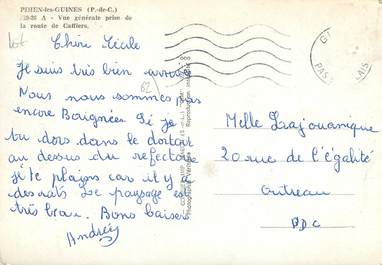 PIHEN-les-GUINES (P.-de-C.)
A - Vue générale prise de
la route de Caffiers.
Chère Cécile
Je suis très bien arrivée
Nous nous sommes pas
encore Baignées. Si je
tu dors dans le dortoir
au dessus du refectoire
je te plains car il y a
des rats Le paysage est
très beau. Bons baisers
Andrée
62
G
PAS
LAIS
Melle Lajouanique
20 rue de l'égalité
Outreau
PDC